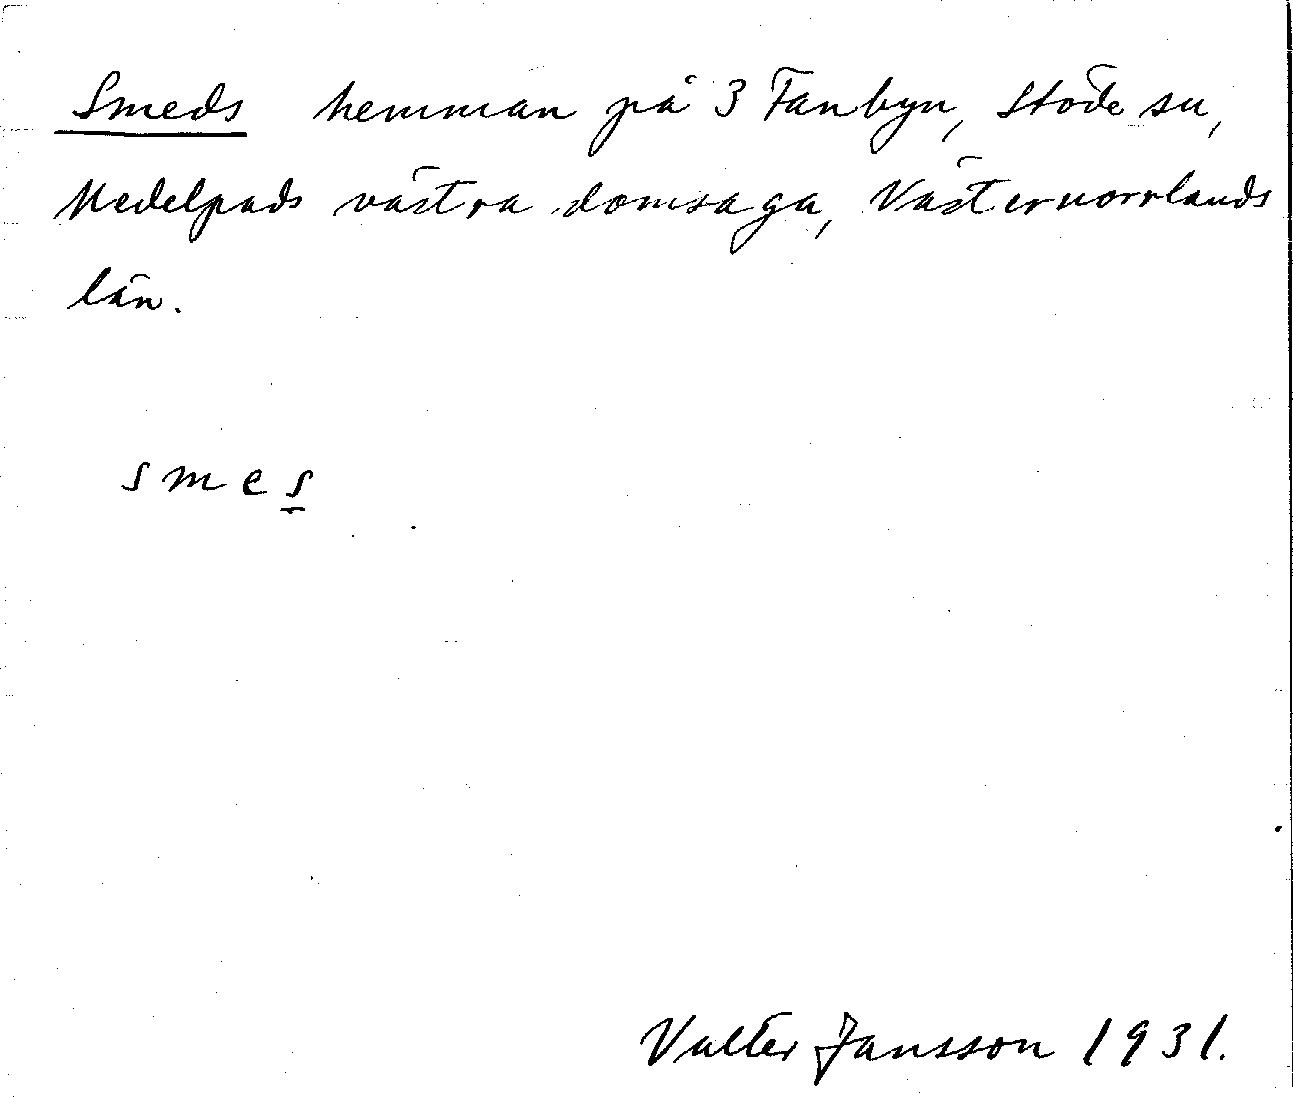 Smeds hemman på 3 Fanbyn, Stöde sn,
Medelpads västra domsaga, Västernorrlands
län.
smes
Valter Jansson 1931.